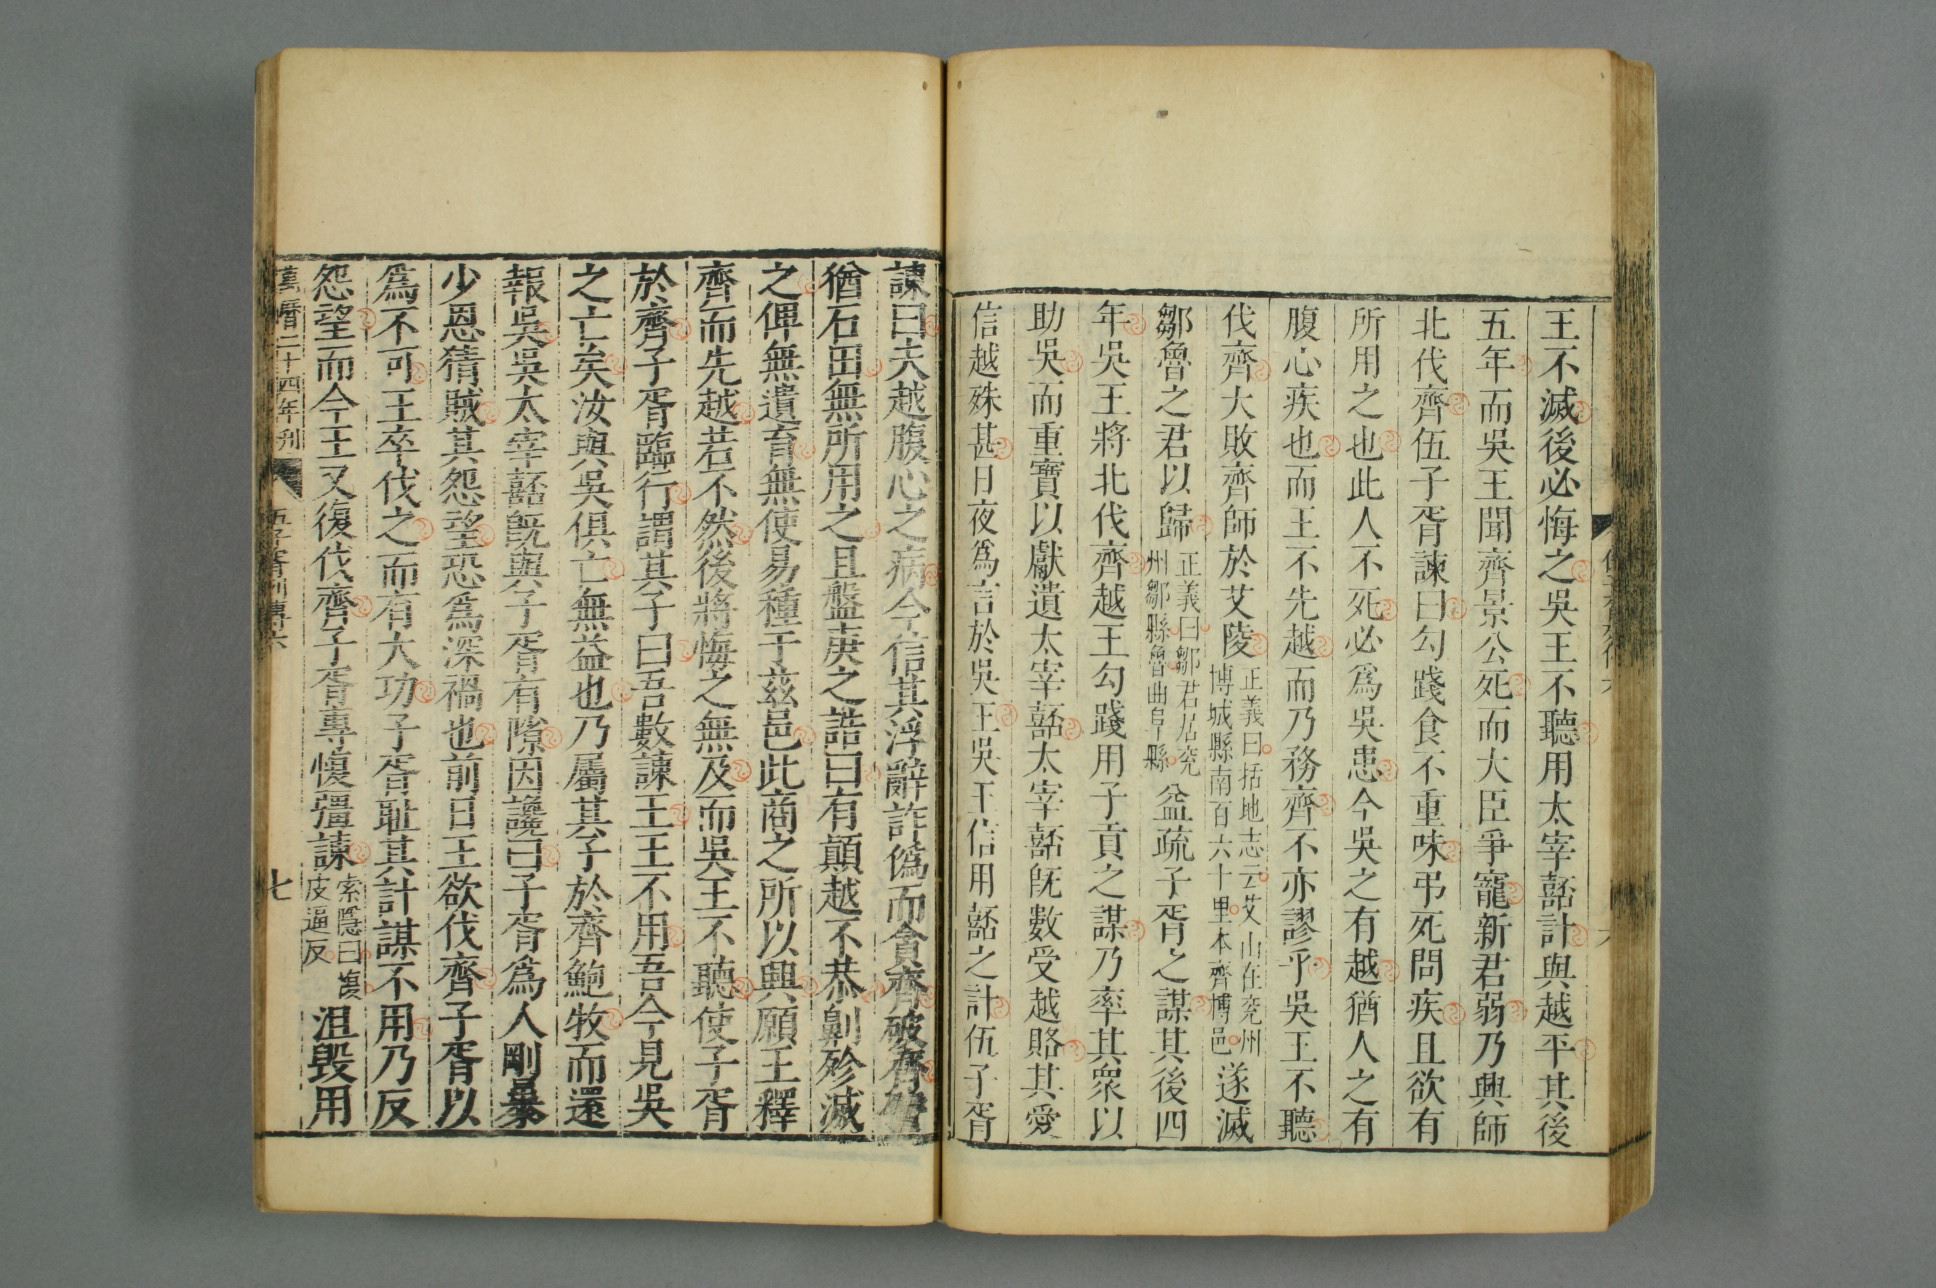 王不滅後必悔之吳王不聽用太宰嚭計與越平其後
五年而吳王聞齊景公死而大臣爭寵新君弱乃興師
北伐齊伍子胥諫曰勾踐食不重味弔死問疾且欲有
所用之也此人不死必爲吳患今吳之有越猶人之有
腹心疾也而王不先越而乃務齊不亦謬乎吳王不聽
伐齊大敗齊師於艾陵正義曰括地志云艾山在兖州博城縣南百六十里本齊博邑遂滅
鄒魯之君以歸正義曰鄒君居兖州鄒縣魯曲阜縣益疏子胥之謀其後四
年吳王將北伐齊越王勾踐用子貢之謀乃率其衆以
助吳而重寶以獻遺太宰嚭太宰嚭旣數受越賂其愛
信越殊甚日夜爲言於吳王吳王信用嚭之計伍子胥
諫曰夫越腹心之病今信其浮辭詐僞而貪齊破齊譬
猶石田無所用之且盤庚之誥曰有顛越不恭劓殄滅
之俾無遺育無使易種于茲邑此商之所以興願王釋
齊而先越若不然後將悔之無及而吳王不聽使子胥
於齊子胥臨行謂其子曰吾數諫王王不用吾今見吳
之亡矣汝與吳俱亡無益也乃屬其子於齊鮑牧而還
報吳吳太宰嚭旣與子胥有隙因讒曰子胥爲人剛暴
少恩猜賊其怨望恐爲深禍也前日王欲伐齊子胥以
爲不可王卒伐之而有大功子胥恥其計謀不用乃反
怨望而今王又復伐齊子胥專愎彊諫索隱曰愎皮逼反沮毀用
萬曆二十四年刊 伍子胥列傳六 七